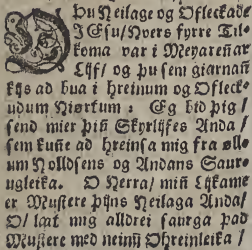 O Þu Heilage og Ofleckade
JEsu/ Hvers fyrre Til-
koma var i Meyarennar
Lijf/ og þu sem giarnañ
kijs ad bua i hreinum og Ofleck-
udum Hiørtum: Eg bid þig/
send mier þiñ Skyrlijfes Anda/
sem kuñe ad hreinsa mig fra øll-
um Holldsens og Andans Saur-
ugleika. O Herra/ miñ Lijkame
er Mustere þijns Heilaga Anda/
O/ laat mig alldrei saurga þad
Mustere med neinũ Ohreinleika/